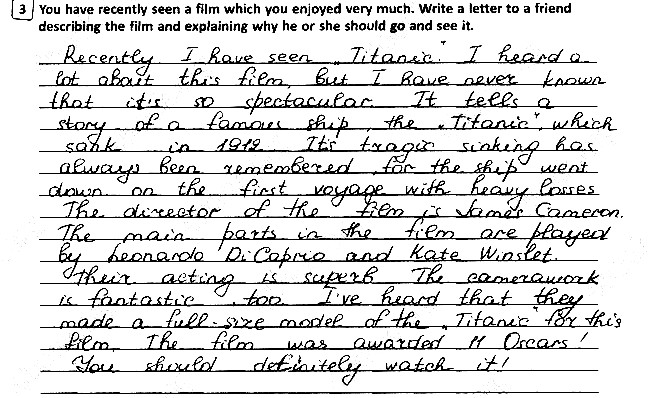 3 You have recently seen a film which you enjoyed very much. Write a letter to a friend
describing the film and explaining why he or she should go and see it.
Recently I have seen „Titanic". I heard a
lot about this film, but I have never known
that it's so spectacular. It tells a
story of a famous ship, the „Titanic", which
sank in 1912. It's tragic sinking has
always been remembered, for the ship went
down on the first voyage with heavy losses
The director of the film is James Cameron.
The main parts in the film are played
by Leonardo DiCaprio and Kate Winslet.
Their acting is superb The camerawork
is fantastic, too. I've heard that they
made a full-size model of the „Titanic" for this
film. The film was awarded 11 Oscars!
You should definitely watch it!